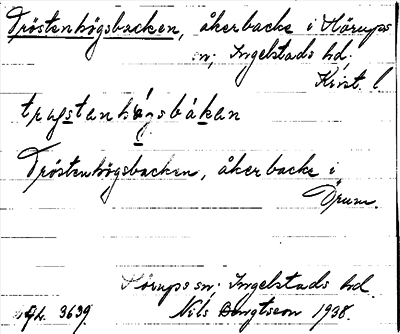 Tröstenhögsbacken, åkerbacke i Hörups
sn; Ingelstads hd.
Krist. l
trystanhågsbákan
Tröstenhögsbacken, åkerbacke i
Örum.
Hörups sn; Ingelstads hd.
3639. Nils Bengtsson 1938.